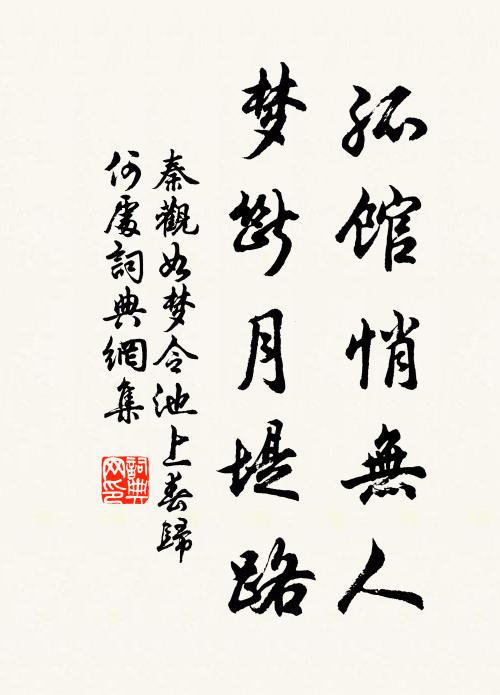 孤馆悄無人
梦斷月堤路
秦觀如梦令池上春歸
何處詞典網集
詞典
网印